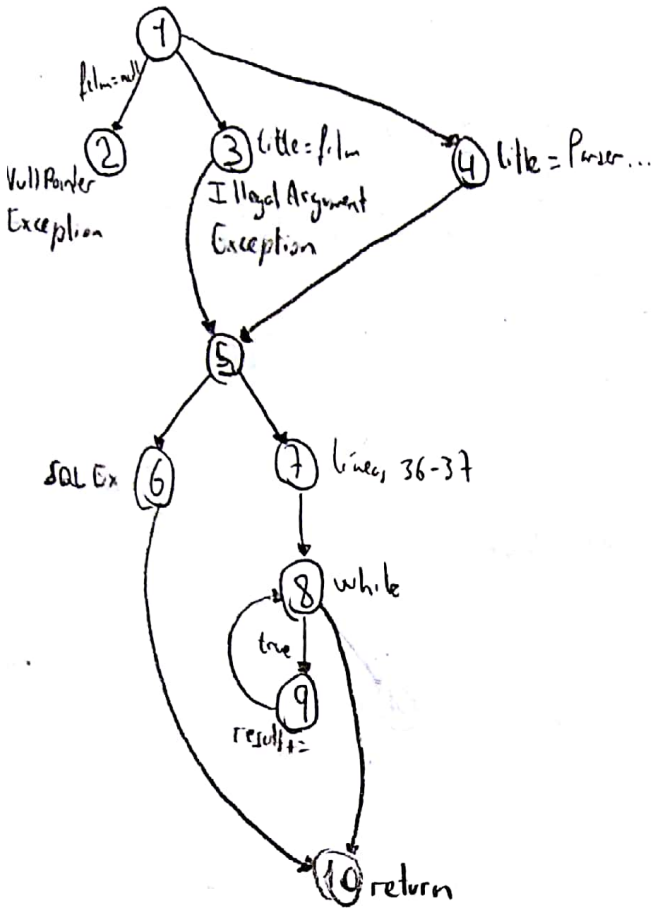 1
film=null
2
NullPointer
Exception
3 title=film
Illegal Argument
Exception
4 title = Parser...
5
SQL Ex 6
7 lineas 36-37
8 while
true
9
result+=
10 return